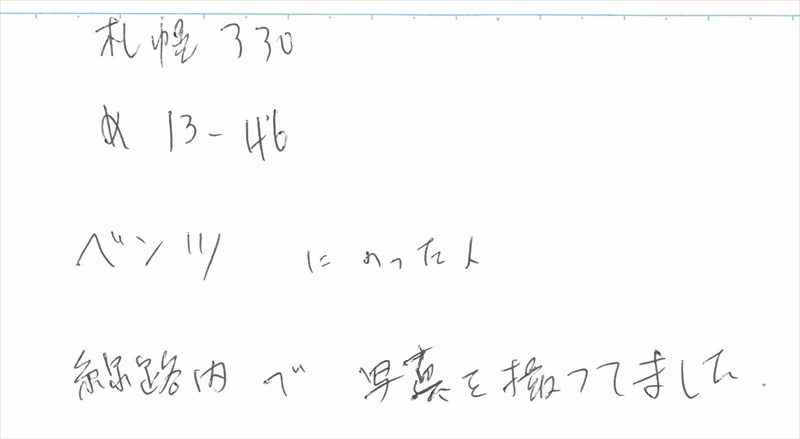 札幌 330
め 13-46
ベンツ にのった人
線路内で 写真を撮ってました.